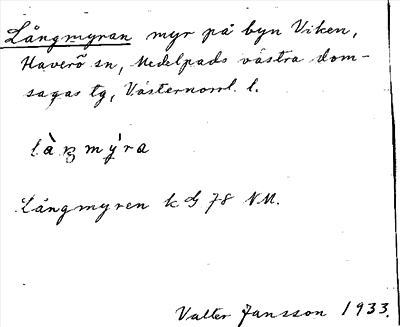 Långmyran myr på byn Viken,
Haverö sn, Medelpads västra dom-
sagas tg, Västernorrl. l.
Långmyren k G 78 NM.
Valter Jansson 1933.